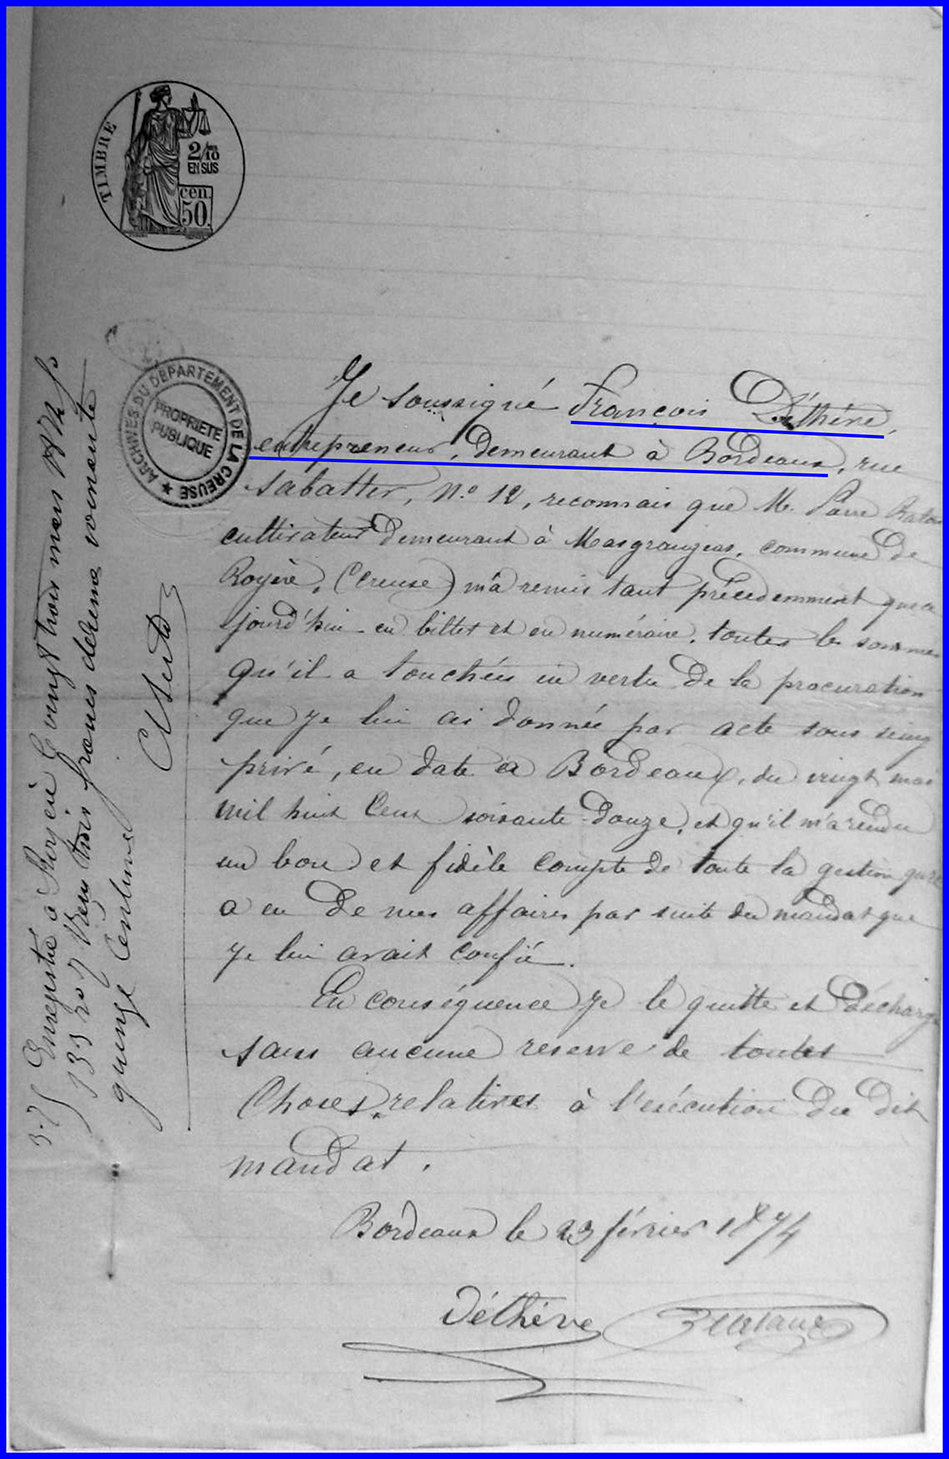 TIMBRE
2/10
EN SUS
cen.
50.
ARCHIVES DU DÉPARTEMENT DE LA CREUSE
PROPRIÉTÉ
PUBLIQUE
Je soussigné François Déthève,
entrepreneur, demeurant à Bordeaux, rue
Sabatter, N.o 12, reconnais que M. Pierre
cultivateur demeurant à Masgrangeas, commune de
Royère, (Creuse) m'a remis tant précedemment qu'au
jourd'hui en billet et en numéraire, toutes les sommes
qu'il a touchées en vertu de la procuration
que je lui ai donnée par acte sous seing
privé, en date à Bordeaux, du vingt mai
mil huit cent soixante-douze, et qu'il m'a rendu
un bon et fidèle compte de toute la gestion qu'il
a eu de mes affaires par suite du mandat que
je lui avait confié.
En conséquence je le quitte et décharge
sans aucune reserve de toutes
Choses relatives à l'exécution du dit
mandat.
Bordeaux le 23 février 1874
Déthève
Enregistré à Royère le vingt trois mars 1874
Vingt trois francs décimes soixante
quinze Centimes